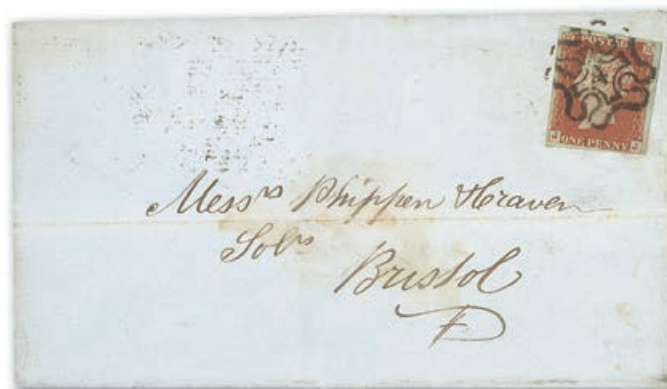 POSTAGE
ONE PENNY
Messrs Phippen & Craven
Solrs
Bristol